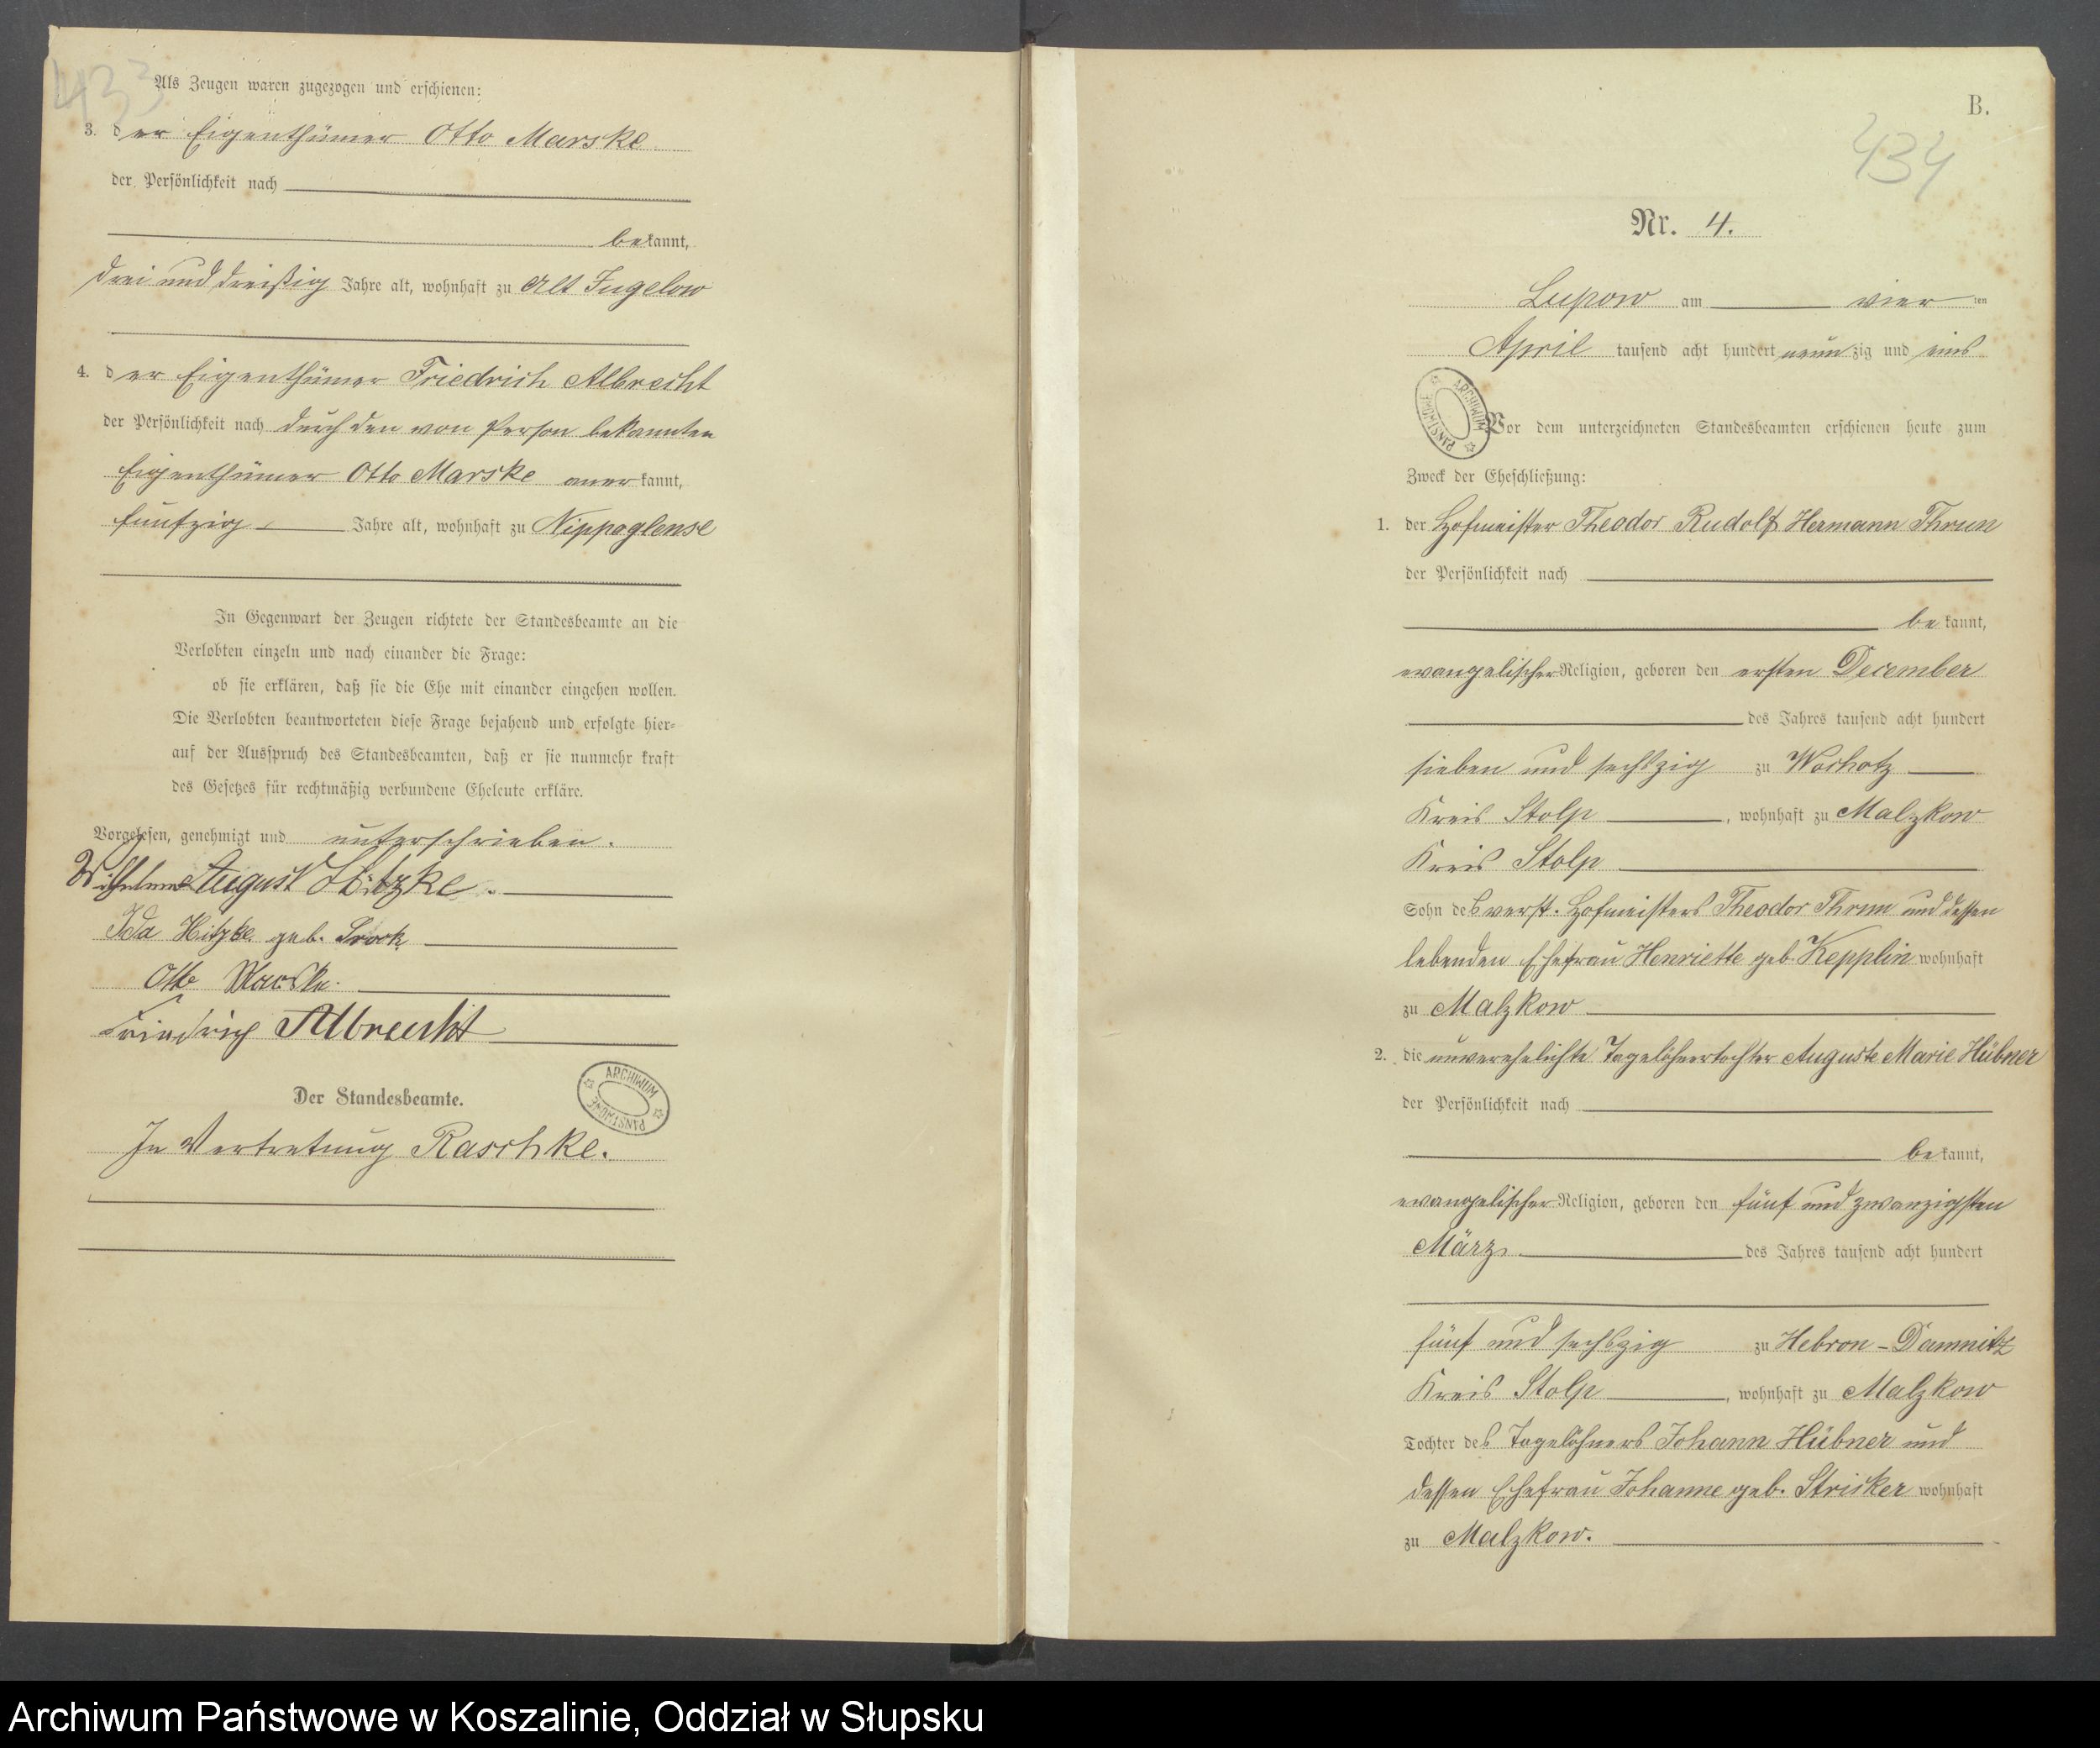 433
Als Zeugen waren zugezogen und erschienen:
3. der Eigenthümer Otto Marske
der Persönlichkeit nach
bekannt,
drei und dreißig Jahre alt, wohnhaft zu Alt Jugelow
4. der Eigenthümer Friedrich Albrecht
der Persönlichkeit nach durch den von Person bekannten
Eigenthümer Otto Marske anerkannt,
fünfzig Jahre alt, wohnhaft zu Nippoglense
In Gegenwart der Zeugen richtete der Standesbeamte an die
Verlobten einzeln und nach einander die Frage:
ob sie erklären, daß sie die Ehe mit einander eingehen wollen.
Die Verlobten beantworteten diese Frage bejahend und erfolgte hier-
auf der Ausspruch des Standesbeamten, daß er sie nunmehr kraft
des Gesetzes für rechtmäßig verbundene Eheleute erkläre.
Vorgelesen, genehmigt und unterschrieben.
Wilhelm August Hitzke.
Ida Hitzke geb.
Otto Marske.
Friedrich Albrecht
Der Standesbeamte.
ARCHIWUM PAŃSTWOWE
In Vertretung Raschke.
B.
434
Nr. 4.
Lupow am vierten
April tausend acht hundert neunzig und eins
ARCHIWUM PAŃSTWOWE
Vor dem unterzeichneten Standesbeamten erschienen heute zum
Zweck der Eheschließung:
1. der Hofmeister Theodor Rudolf Hermann Thrun
der Persönlichkeit nach
bekannt,
evangelischer Religion, geboren den ersten December
des Jahres tausend acht hundert
sieben und sechszig zu Wochotz
Kreis Stolp, wohnhaft zu Malzkow
Kreis Stolp
Sohn des verst. Hofmeisters Theodor Thrun und dessen
lebenden Ehefrau Henriette geb. Kepplin wohnhaft
zu Malzkow
2. die unverehelichte Tagelöhnertochter Auguste Marie Hübner
der Persönlichkeit nach
bekannt,
evangelischer Religion, geboren den fünf und zwanzigsten
März des Jahres tausend acht hundert
fünf und sechszig zu Hebron-Damnitz
Kreis Stolp, wohnhaft zu Malzkow
Tochter des Tagelöhners Johann Hübner und
dessen Ehefrau Johanne geb. Stricker wohnhaft
zu Malzkow.
Archiwum Państwowe w Koszalinie, Oddział w Słupsku